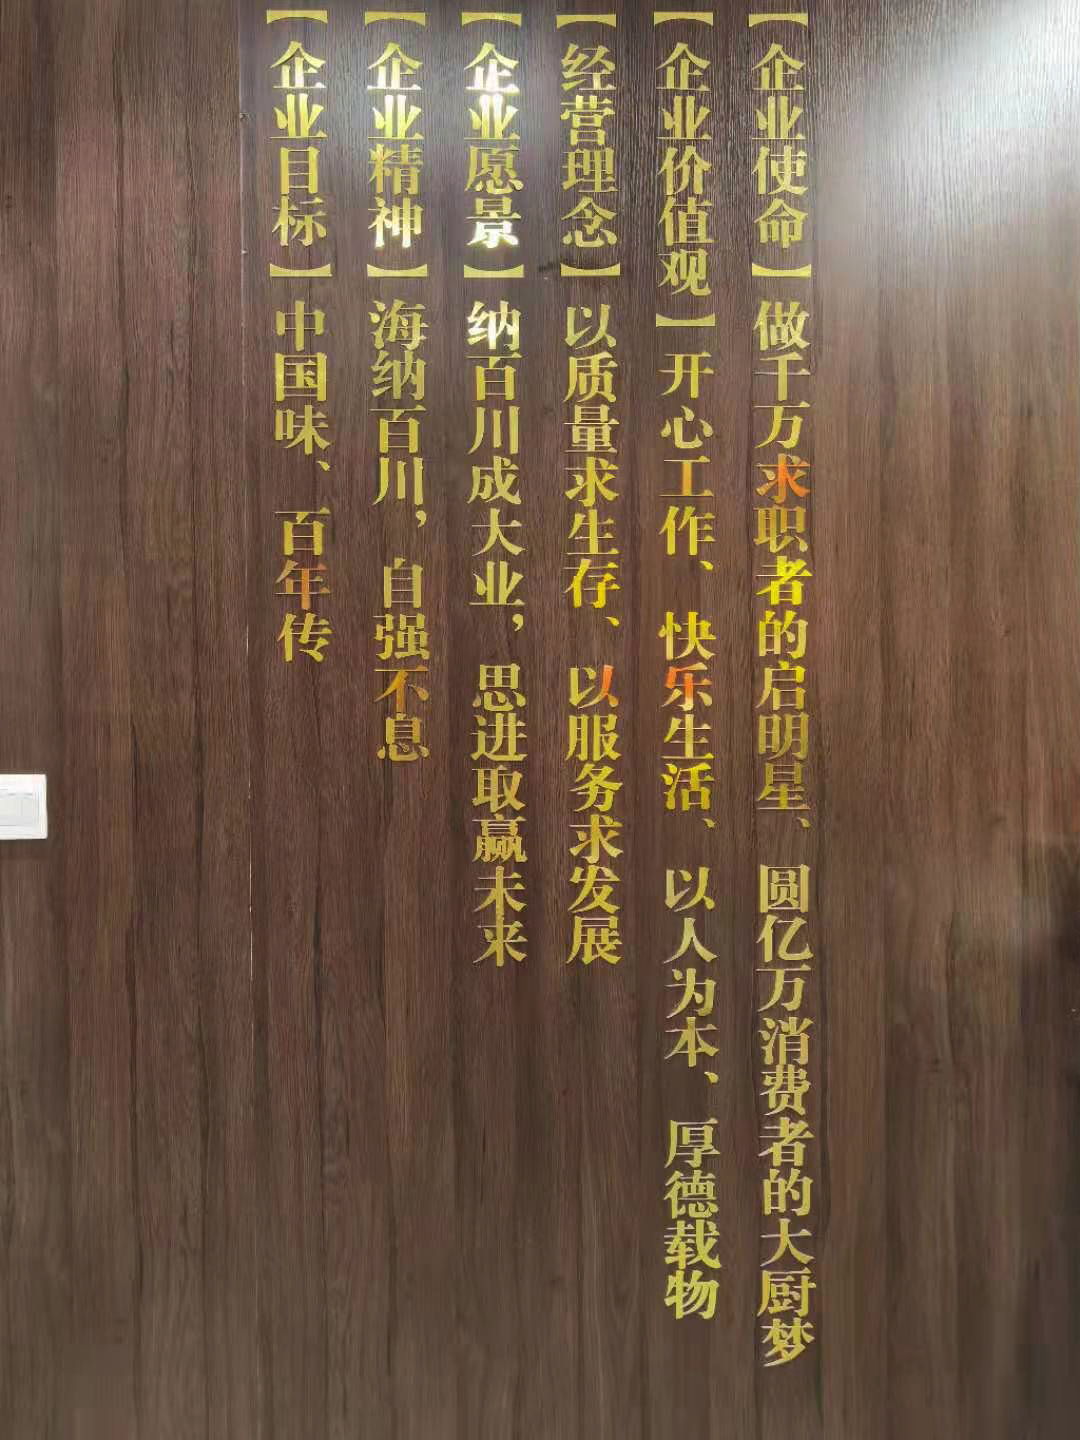 【企业使命】做千万求职者的启明星、圆亿万消费者的大厨梦
【企业价值观】开心工作、快乐生活、以人为本、厚德载物
【经营理念】以质量求生存、以服务求发展
【企业愿景】纳百川成大业，思进取赢未来
【企业精神】海纳百川，自强不息
【企业目标】中国味、百年传